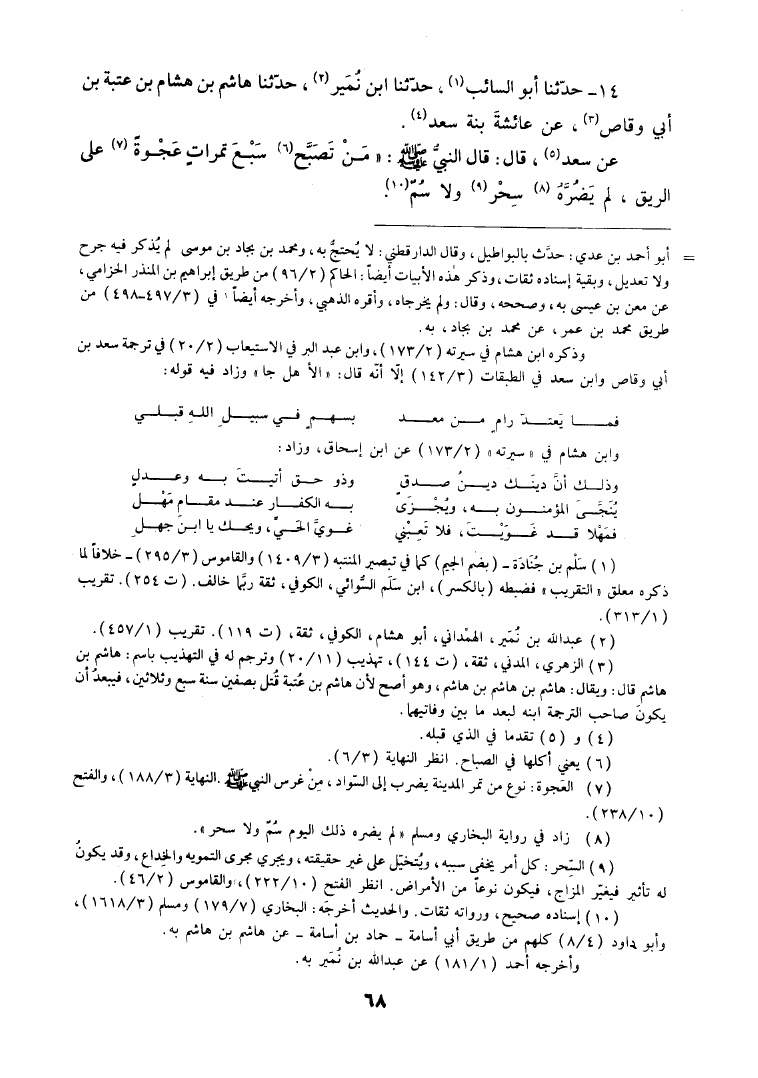 ١٤ـ حدّثنا أبو السائب(١) ، حدّثنا ابن نُمَير(٢) ، حدّثنا هاشم بن هشام بن عتبة بن
أبي وقاص(٣) ، عن عائشةَ بنة سعد(٤) .
عن سعد(٥) ، قال : قال النبيُّ ﷺ : « مَـنْ تَصَبَّح(٦) سَبْعَ تمراتٍ عَجْـوةً (٧) على
الريق ، لم يَضُرَّهُ (٨) سِحْر(٩) ولا سُمّ(١٠).
= أبو أحمد بن عدي : حدَّث بالبواطيل ، وقال الدارقطني : لا يُحتجُّ به ، ومحمد بن بجاد بن موسى لم يُذكر فيه جرح
ولا تعديل ، وبقية إسناده ثقات ، وذكر هٰذه الأبيات أيضاً : الحاكم (٩٦/٢) من طريق إبراهيم بن المنذر الحزامي ،
عن معن بن عيسى به ، وصححه ، وقال : ولم يخرجاه ، وأقره الذهبي ، وأخرجه أيضاً في (٤٩٧/٣ـ٤٩٨) من
طريق محمد بن عمر ، عن محمد بن بجاد ، به .
وذكره ابن هشام في سيرته (١٧٣/٢) ، وابن عبد البر في الاستيعاب (٢٠/٢) في ترجمة سعد بن
أبي وقاص وابن سعد في الطبقات (١٤٢/٣) إلّا أنّه قال : « ألا هل جا » وزاد فيه قوله :
فمـا يَعتـدّ رامٍ مـن معـد بسهـمٍ فـي سبيـل اللهِ قبـلـي
وابن هشام في « سيرته » (١٧٣/٢) عن ابن إسحاق ، وزاد :
وذلـك أنَّ دينَـك ديـنُ صـدقٍ وذو حـق أتيـتَ بـه وعـدلِ
يُنَجَّـى المؤمنـون بـه ، ويُجْـزَى بـه الكفـار عنـد مقـام مَهْـلِ
فمَهْلا قـد غـوَيْـتَ ، فلا تَعِبْني غـويَّ الحَيِّ ، ويحـك يا ابـن جهـلِ
(١) سَلْم بن جُنَادَة ـ (بضم الجيم) كما في تبصير المنتبه (١٤٠٩/٣) والقاموس (٢٩٥/٣) ـ خلافاً لما
ذكره معلق « التقريب » فضبطه (بالكسر) ، ابن سَلْم السُّوائي ، الكوفي ، ثقة ربَّما خالف . (ت ٢٥٤) . تقريب
(٣١٣/١) .
(٢) عبدالله بن نُمَير ، الهَمْداني ، أبو هشام ، الكوفي ، ثقة ، (ت ١١٩) . تقريب (٤٥٧/١) .
(٣) الزهري ، المدني ، ثقة ، (ت ١٤٤) ، تهذيب (٢٠/١١) وترجم له في التهذيب باسم : هاشم بن
هاشم قال : ويقال : هاشم بن هاشم بن هاشم ، وهو أصح لأن هاشم بن عُتبة قُتل بصفين سنة سبع وثلاثين ، فيبعدُ أن
يكونَ صاحب الترجمة ابنه لبعد ما بين وفاتيهما .
(٤) و (٥) تقدما في الذي قبله .
(٦) يعني أكلها في الصباح . انظر النهاية (٦/٣) .
(٧) العَجوة : نوع من تمر المدينة يضرب إلى السَّواد ، مِنْ غرس النبي ﷺ . النهاية (١٨٨/٣) ، والفتح
(٢٣٨/١٠) .
(٨) زاد في رواية البخاري ومسلم « لم يضره ذلك اليوم سُمّ ولا سحر » .
(٩) السِّحر : كل أمر يخفى سببه ، ويُتخيّل على غير حقيقته ، ويجري مجرى التمويه والخِداع ، وقد يكونُ
له تأثير فيغيّر المزاج ، فيكون نوعاً من الأمراض . انظر الفتح (٢٢٢/١٠) ، والقاموس (٤٦/٢) .
(١٠) إسناده صحيح ، ورواته ثقات . والحديث أخرجَه : البخاري (١٧٩/٧) ومسلم (١٦١٨/٣) ،
وأبو داود (٨/٤) كلهم من طريق أبي أسامة ـ حماد بن أسامة ـ عن هاشم بن هاشم به .
وأخرجه أحمد (١٨١/١) عن عبدالله بن نُمَير به .
٦٨